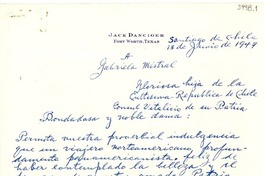 JACK DANCIGER
FORT WORTH, TEXAS
Santiago de Chile
18 de Junio de 1949
A
Gabriela Mistral
Gloriosa hija de la
Cultisima Republica de Chile
Consul Vitalicio de su Patria
Bondadosa y noble dama:
Permita vuestra proverbial indulgencia
que un viajero norteamericano, profun-
damente panamericanista, feliz de
haber contemplado la belleza y el
Patria